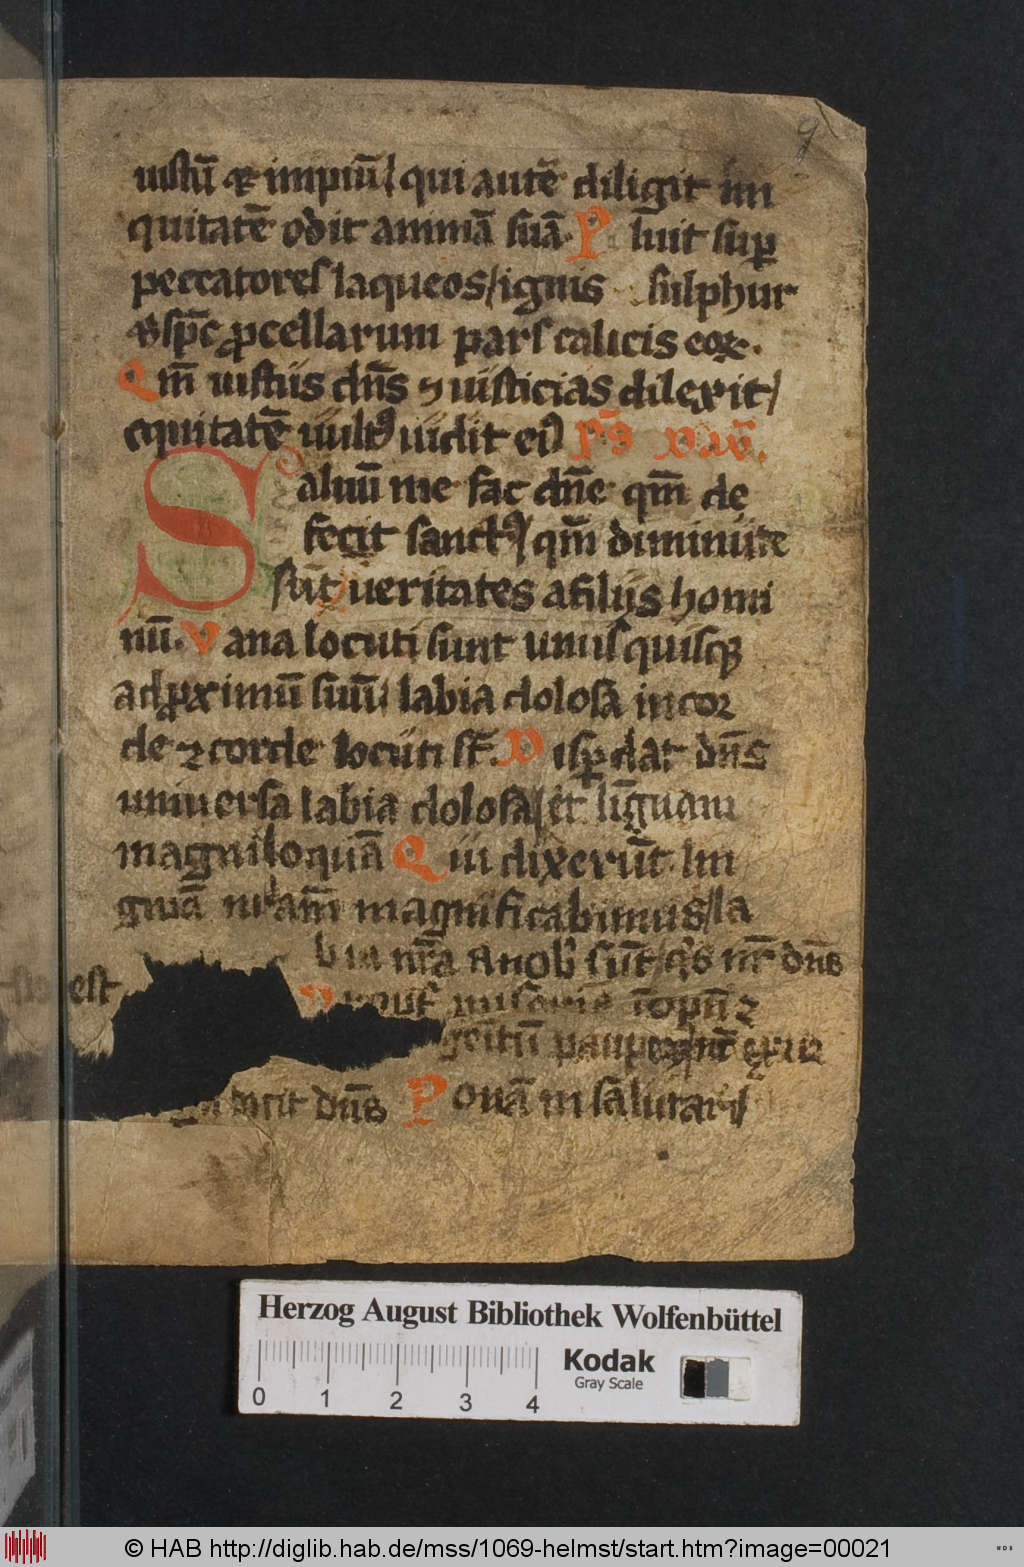 9
iustū et impiū / qui autē diligit ini
quitatē odit animā suā. Pluit sup̄
peccatores laqueos / ignis sulphur
sp̄c ꝓcellarum pars calicis eoꝝ.
Qm̄ iustus dn̄s ⁊ iusticias dilexit /
equitatē uultꝰ uidit eiꝰ Pꝰ Dauid.
Saluū me fac dn̄e qm̄ de
fecit sanctꝰ / qm̄ diminute
sūt ueritates a filijs homi
nū. Vana locuti sunt unusquisqꝫ
ad ꝓximū suū / labia dolosa in cor
de ⁊ corde locuti st̄. Disꝑdat dn̄s
uniuersa labia dolosa / et līguam
magniloquā Qui dixerūt lin
guā nr̄am magnificabimus / la
est bia nr̄a a nobꝭ sūt / qͥs nr̄ dn̄s
īopū ⁊
gemitū pauperū nūc exur
dicit dn̄s Ponā in salutari /
Herzog August Bibliothek Wolfenbüttel
Kodak
Gray Scale
0 1 2 3 4
© HAB http://diglib.hab.de/mss/1069-helmst/start.htm?image=00021